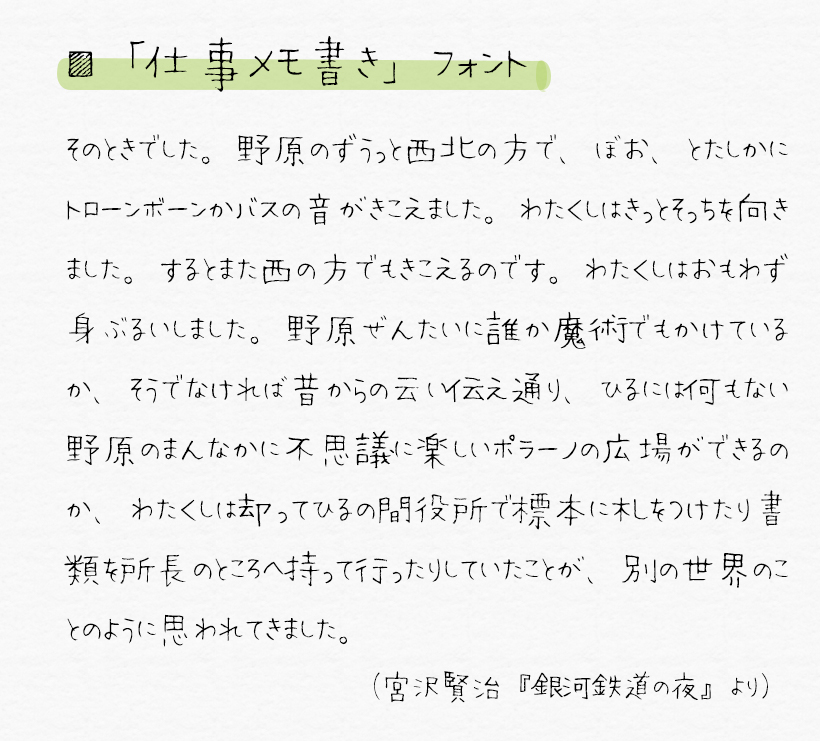 ▨「仕事メモ書き」フォント
そのときでした。野原のずうっと西北の方で、ぼお、とたしかに
トローンボーンかバスの音がきこえました。わたくしはきっとそっちを向き
ました。するとまた西の方でもきこえるのです。わたくしはおもわず
身ぶるいしました。野原ぜんたいに誰か魔術でもかけている
か、そうでなければ昔からの云い伝え通り、ひるには何もない
野原のまんなかに不思議に楽しいポラーノの広場ができるの
か、わたくしは却ってひるの間役所で標本に札をつけたり書
類を所長のところへ持って行ったりしていたことが、別の世界のこ
とのように思われてきました。
（宮沢賢治『銀河鉄道の夜』より）